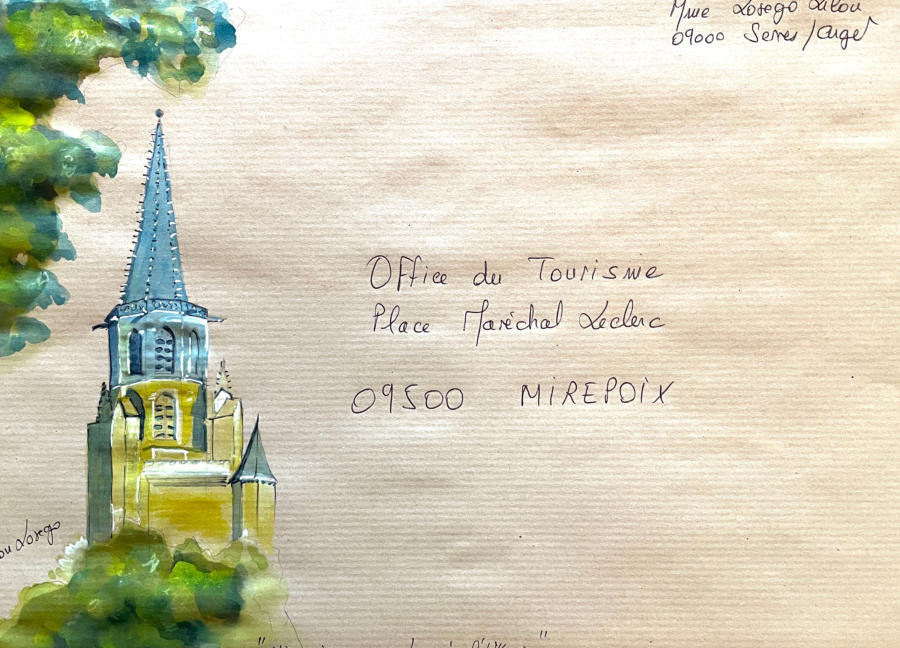 Mme Losego Lilou
09000 Serres/Arget
Office du Tourisme
Place Maréchal Leclerc
09500 MIREPOIX
Losego